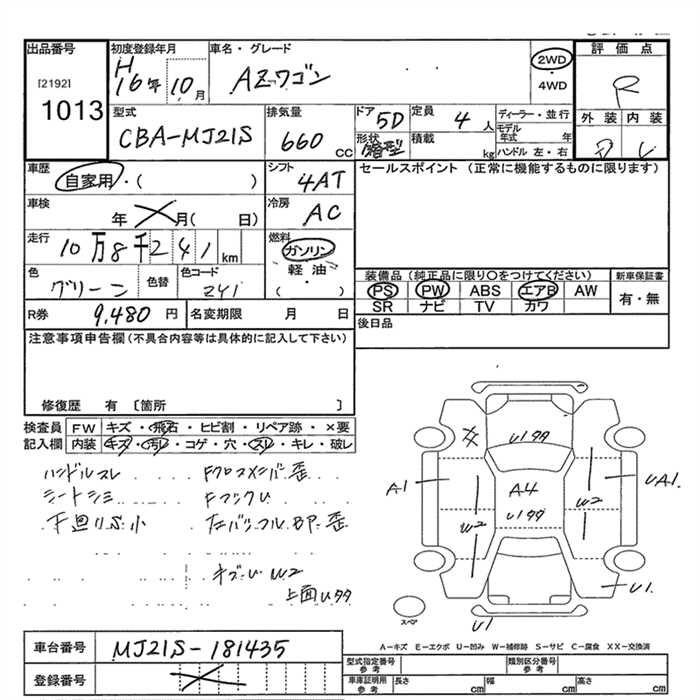 出品番号
[2192]
1013
初度登録年月
H16年 10月
車名・グレード
AZワゴン
2WD
・
4WD
評価点
R
外装 内装
型式
CBA-MJ21S
排気量
660 cc
ドア 5D
形状 箱型
定員 4人
積載 kg
ディーラー・並行
モデル年式 年
ハンドル 左・右
車歴
自家用・( )
シフト
4AT
セールスポイント (正常に機能するものに限ります)
車検
年 月( 日)
冷房
AC
走行
10万8千241km
燃料
ガソリン
・
軽油
・
( )
色
グリーン
色替
色コード
Z41
装備品 (純正品に限り○をつけてください)
PS PW ABS エアB AW
SR ナビ TV カワ
新車保証書
有・無
R券 9,480円
名変期限 月 日
後日品
注意事項申告欄 (不具合内容等は具体的に記入して下さい)
修復歴 有 〔箇所 〕
検査員記入欄
FW キズ・飛石・ヒビ割・リペア跡・×要
内装 キズ・汚レ・コゲ・穴・スレ・キレ・破レ
ハンドルスレ
シートシミ
下廻りS小
Fクロスメンバ歪
W2
上面Uタタ
A1
U1タタ
A4
U1タタ
W2
W2
UA1
U1
U1
スペア
A-キズ E-エクボ U-凹み W-補修跡 S-サビ C-腐食 XX-交換済
車台番号 MJ21S-181435
登録番号
型式指定番号
参考
類別区分番号
参考
車庫証明用
参考
長さ cm 幅 cm 高さ cm